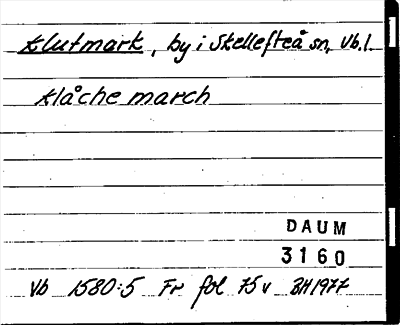 Klutmark, by i Skellefteå sn, Vb.l.
Klåche march
DAUM
3160
Vb 1580:5 Fr fol 75 v BH 1977